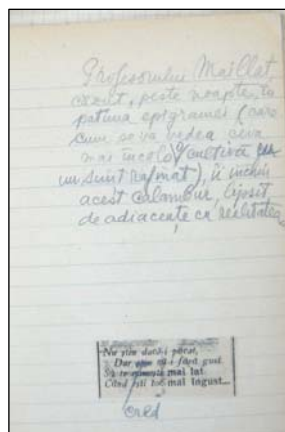 Profesorului Maillat,
peste noapte, cu
patima epigramei (care
cum se va vedea ceva
mai încolo, cultivă
un sunt rafinat), îi închin
acest calambur, lipsit
de adiacente cu realitatea
Nu știu dacă-i păcat,
Dar spun că-i fără gust
Să te mai lat
Când ești tot mai îngust...
cred